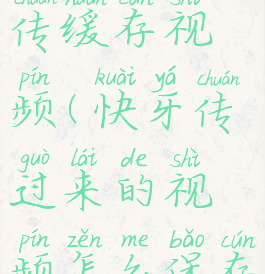 chuán huǎn cún shì
传缓存视
pín kuài yá chuán
频(快牙传
guò lái de shì
过来的视
pín zěn me bǎo cún
频怎么保存